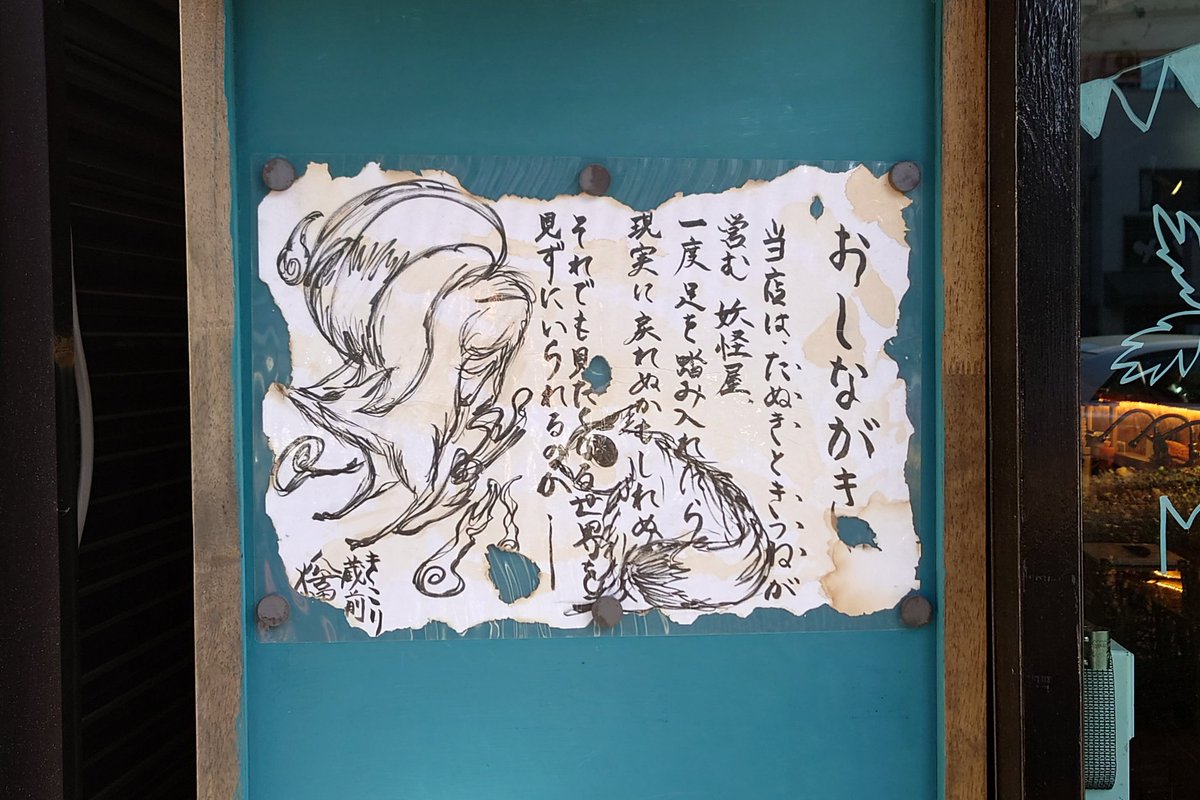 おしながき
当店は、たぬきときつねが
営む 妖怪屋、
一度足を踏み入れたら
現実に戻れぬかもしれぬ
それでも見たくなる世界を
見ずにいられるのか―
きこり
蔵前